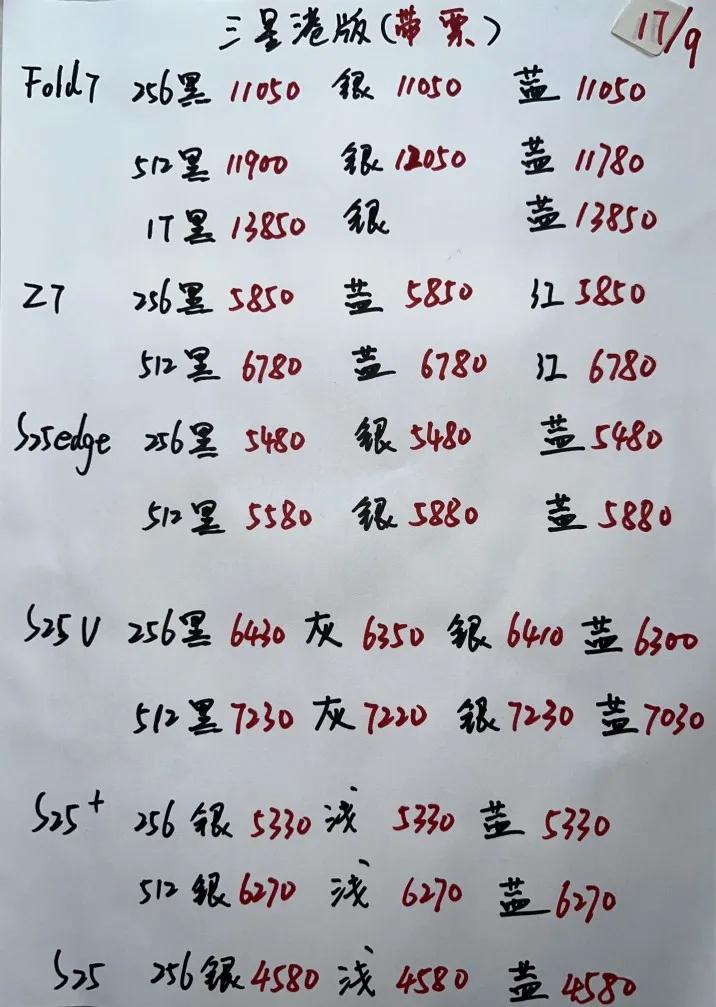 三星港版(带票) 17/9
Fold7 256黑 11050 银 11050 蓝 11050
512黑 11900 银 12050 蓝 11780
1T黑 13850 银 蓝 13850
Z7 256黑 5850 蓝 5850 红 5850
512黑 6780 蓝 6780 红 6780
S25edge 256黑 5480 银 5480 蓝 5480
512黑 5580 银 5880 蓝 5880
S25U 256黑 6430 灰 6350 银 6410 蓝 6300
512黑 7230 灰 7220 银 7230 蓝 7030
S25+ 256 银 5330 浅 5330 蓝 5330
512 银 6270 浅 6270 蓝 6270
S25 256 银 4580 浅 4580 蓝 4580